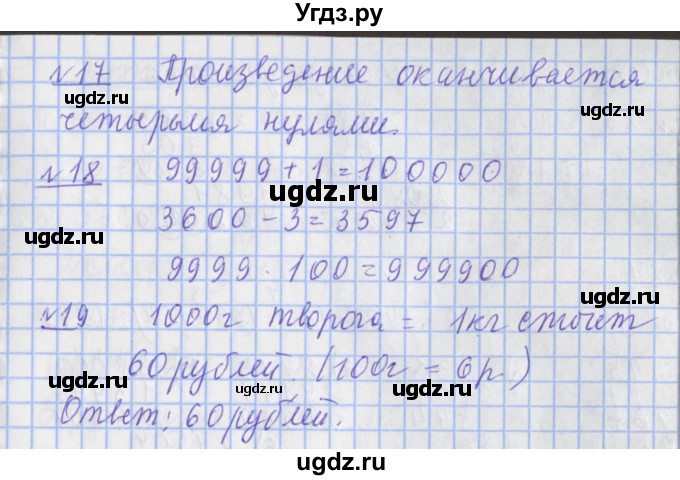 Угдз.ру
№17 Произведение оканчивается
ugdz.ru ugdz.ru
четырьмя нулями.
№18 99999 + 1 = 100000
ugdz.ru
3600 - 3 = 3597
ugdz.ru
9999 · 100 = 999900
ugdz.ru
№19 1000г творога = 1кг стоит
60 рублей. (100г = 6р.)
ugdz.ru ugdz.ru
Ответ: 60 рублей.
ugdz.ru
ugdz.ru